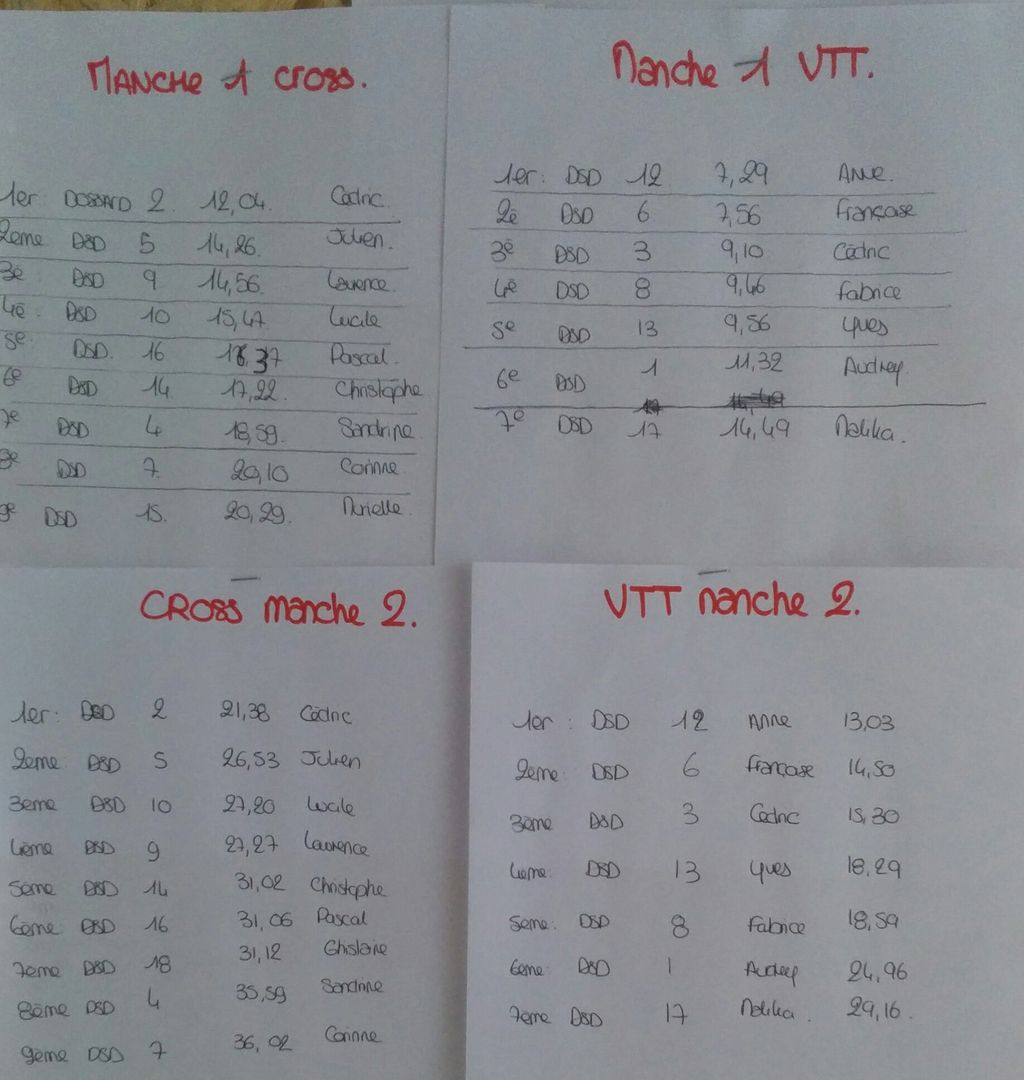 MANCHE 1 CROSS.
1er: DOSSARD 2. 12,04. Cédric.
2eme DSD 5 14,26. Julien.
3e DSD 9 14,56. Laurence.
4e: DSD 10 15,47 Lucile
5e: DSD. 16 37 Pascal.
6e DSD 14 17,22. Christophe
7e DSD 4 18,59. Sandrine
8e DSD 7. 20,10 Corinne
9e DSD 15. 20,29. Murielle.
Manche 1 VTT.
1er: DSD 12 7,29 Anne.
2e DSD 6 7,56 Françoise
3e DSD 3 9,10 Cédric
4e DSD 8 9,46 Fabrice
5e DSD 13 9,56 Yves
6e DSD 1 11,32 Audrey.
7e DSD 17 14,49 Malika.
CROSS manche 2.
1er: DSD 2 21,38 Cédric
2eme: DSD 5 26,53 Julien
3eme DSD 10 27,20 Lucile
4eme DSD 9 27,27 Laurence
5eme DSD 14 31,02 Christophe
6eme: DSD 16 31,06 Pascal
7eme DSD 18 31,12 Ghislaine
8ème DSD 4 35,59 Sandrine
9eme DSD 7 36,02 Corinne
VTT manche 2.
1er: DSD 12 Anne 13,03
2eme: DSD 6 Françoise 14,50
3eme DSD 3 Cédric 15,30
4eme: DSD 13 Yves 18,29
5eme: DSD 8 Fabrice 18,59
6eme: DSD 1 Audrey 24,96
7eme DSD 17 Malika. 29,16.